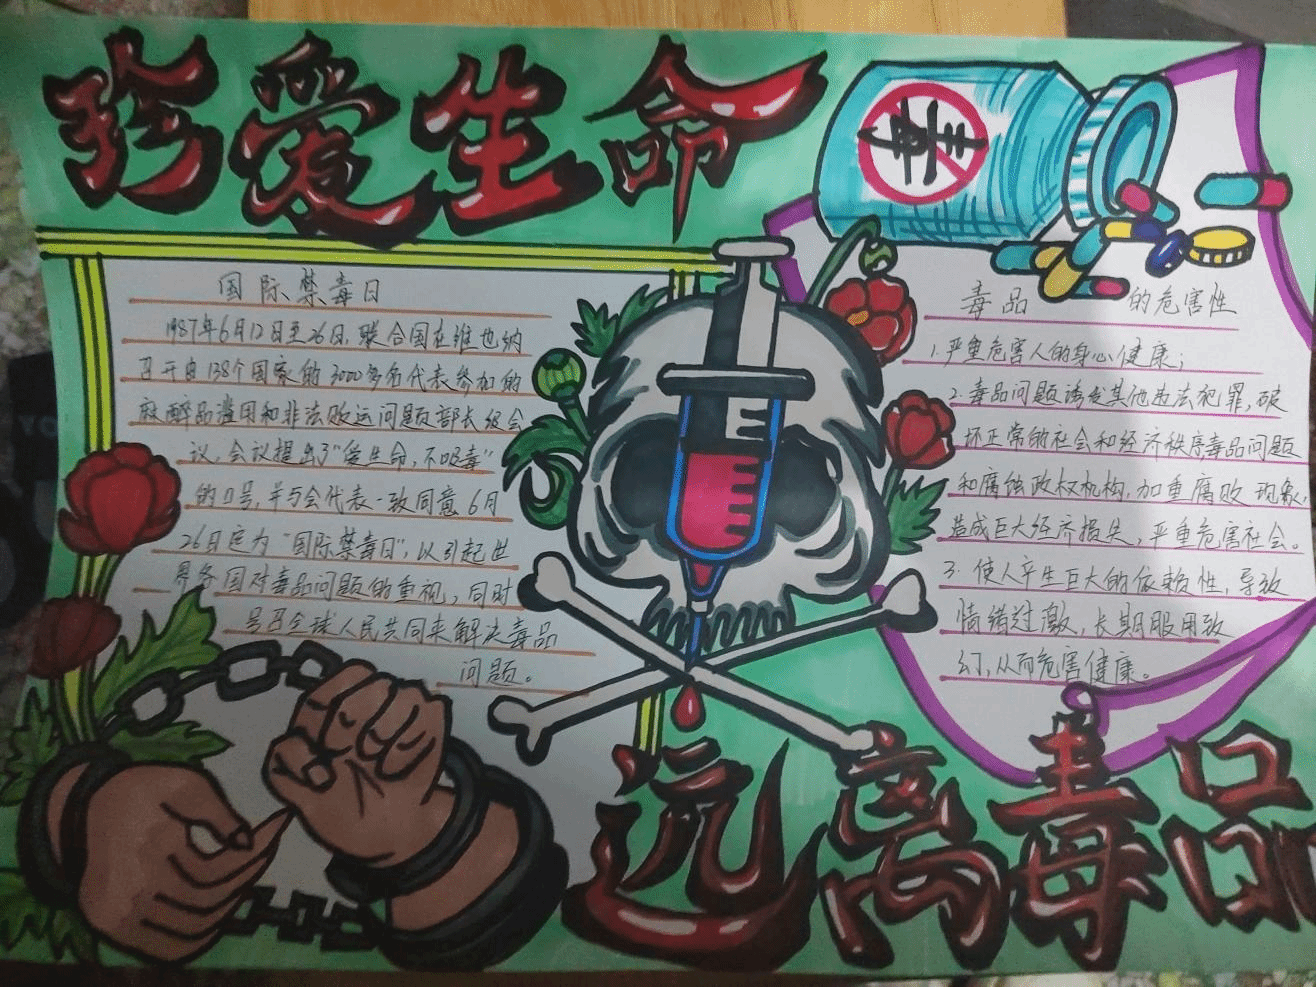 珍爱生命
毒
国际禁毒日
1987年6月12日至26日,联合国在维也纳
召开由138个国家的3000多名代表参加的
麻醉品滥用和非法贩运问题部长级会
议,会议提出了"爱生命,不吸毒"
的口号,并与会代表一致同意6月
26日定为"国际禁毒日",以引起世
界各国对毒品问题的重视,同时
号召全球人民共同来解决毒品
问题。
毒品 的危害性
1.严重危害人的身心健康;
2.毒品问题诱发其他违法犯罪,破
坏正常的社会和经济秩序毒品问题
和腐蚀政权机构,加重腐败现象,
造成巨大经济损失,严重危害社会。
3.使人产生巨大的依赖性,导致
情绪过激,长期服用致
幻,从而危害健康。
远离毒品